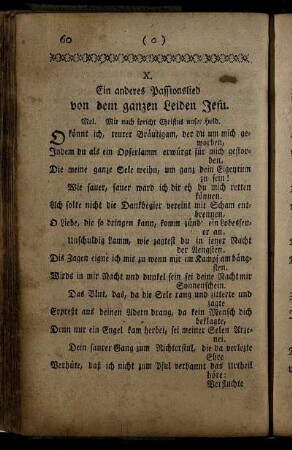 60 ( o )
X.
Ein anderes Passionslied
von dem ganzen Leiden Jesu.
Mel. Mir nach spricht Christus unser Held.
O könnt ich, teurer Bräutigam, der du um mich ge-
worben,
Indem du als ein Opferlamm erwürgt für mich gestor-
ben.
Die meine ganze Sele weihn, um ganz dein Eigentum
zu sein!
Wie sauer, sauer ward ich dir eh du mich retten
können.
Ach solte nicht die Dankbegier vereint mit Scham ent-
brennen.
O Liebe, die so dringen kann, komm zünd ein Lobesfeu-
er an.
Unschuldig Lamm, wie zagtest du in jener Nacht
der Aengsten.
Dis Zagen eigne ich mir zu wenn mir im Kampf am bäng-
sten.
Wirds in mir Nacht und dunkel sein sei deine Nacht mir
Sonnenschein.
Das Blut, das, da die Sele rang und zitterte und
zagte
Erpreßt aus deinen Adern drang, da kein Mensch dich
beklagte,
Denn nur ein Engel kam herbei, sei meiner Selen Arze-
nei.
Dein saurer Gang zum Richterstul, die da verlezte
Ehre
Verhüte, daß ich nicht zum Pful verbannt das Urtheil
höre:
Verfluchte